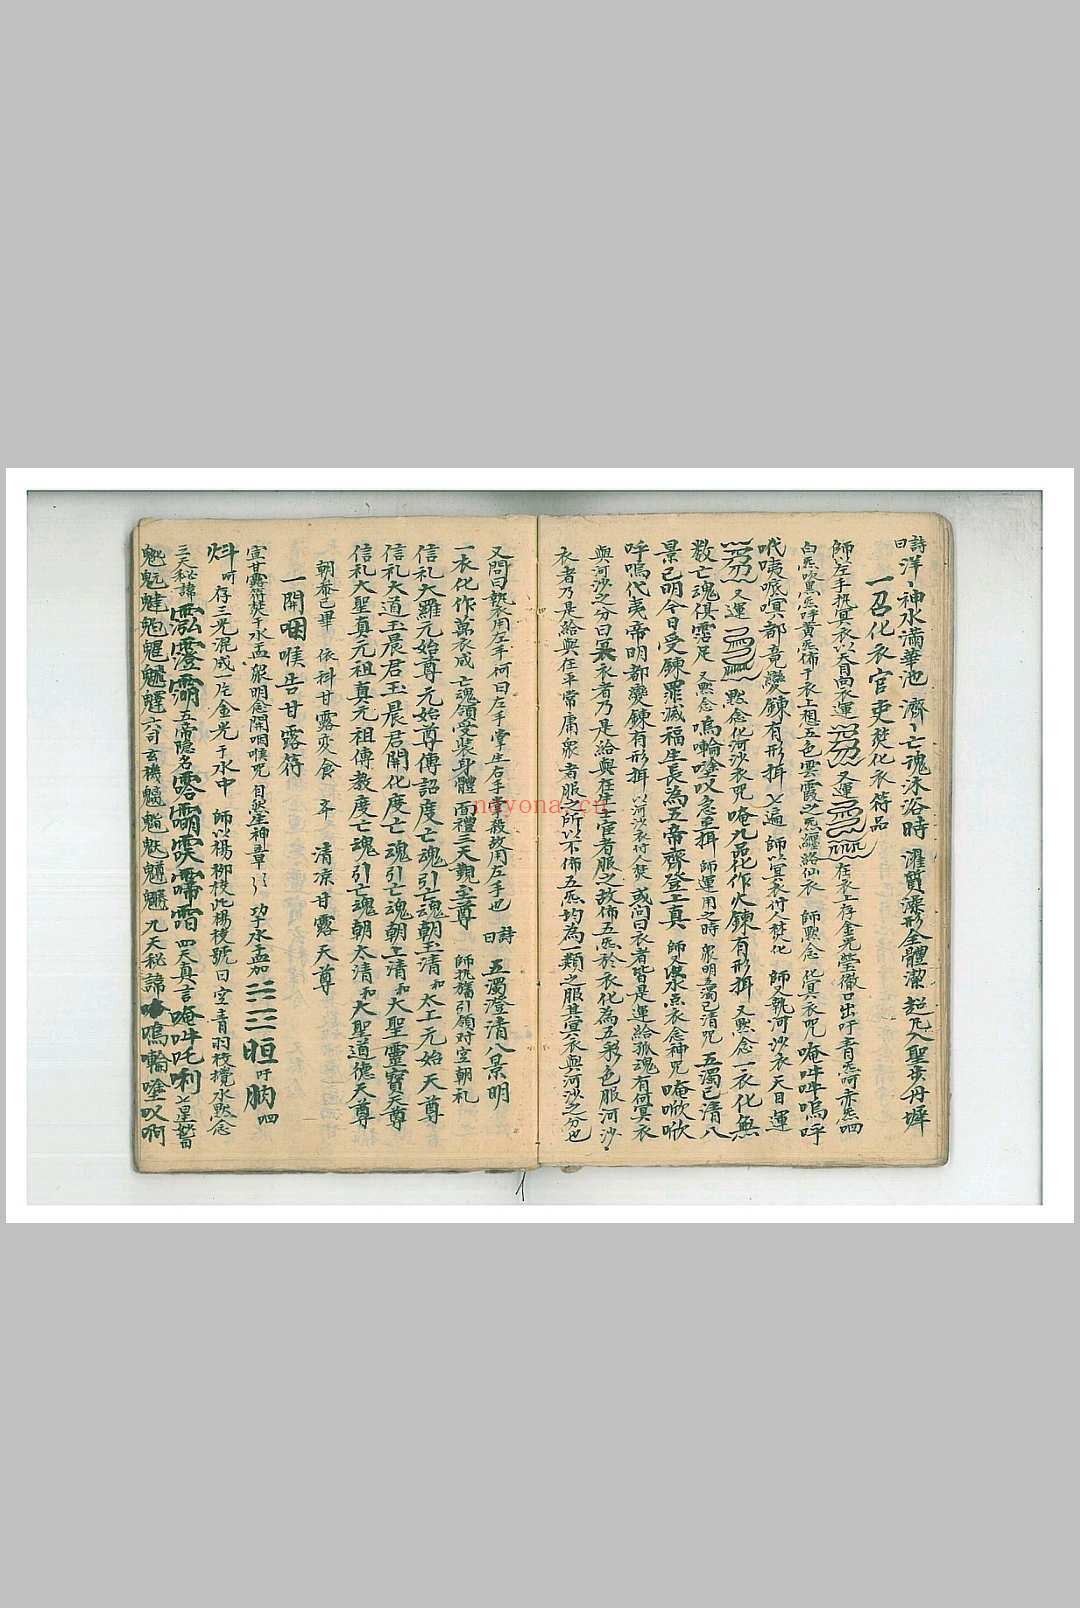 詩曰 洋〻神水滿華池 濟〻亡魂沐浴時 濯質湅形全體潔 超凡入聖步丹墀
一召化衣官吏焚化衣符品
師左手执冥衣以天目向衣運 又運 在衣上存金光瑩徹口出吁青炁呵赤炁呬
白炁吹黑炁呼黄炁佈于衣上想五色雲霞之炁纏絡仙衣 師默念化冥衣咒 唵吽吽嗚呼
氓咦哌嗼都竟變鍊有形揖 七遍 師以冥衣付人焚化 師又執河沙衣天目運
又運 默念化河沙衣咒 唵九品化作火鍊有形揖 又默念一衣化無
数亡魂俱霑足 又默念嗚㘄㗌叹急至揖 師運用之時 衆明五濁已清咒 五濁已清八
景已明今日受鍊罪滅福生長為五帝齊登上真 師又噀水点衣念神咒 唵㗸㗸
呼嗚代夷帝明都変鍊有形揖 以河沙衣付人焚 或问曰衣者皆是運給孤魂有何冥衣
與河沙之分曰冥衣者乃是給與在生官者服之故佈五炁於衣化為五彩色服河沙
衣者乃是給與在平常庸衆者服之所以不佈五炁均為一類之服其冥衣與河沙之分也
又問曰執衣用左手何曰左手掌生右手掌殺故用左手也 詩曰 五濁澄清八景明
一衣化作萬衣成 亡魂領受裝身體 面禮三天觀至尊 師执旛引領对空朝礼
信礼大羅元始尊元始尊傳詔度亡魂引亡魂朝玉清和太上元始天尊
信礼大道玉晨君玉晨君開化度亡魂引亡魂朝上清和大聖靈寶天尊
信礼大聖真元祖真元祖傳教度亡魂引亡魂朝太清和大聖道德天尊
朝叅已畢 依科甘露变食 清凉甘露天尊
一開咽喉告甘露符
宣甘露符焚于水盂衆明念開咽喉咒 自然生神章 水盂加 晅吁 胊四
炓呵存三光混成一片金光于水中 師以楊柳枝此楊枝號曰空青羽枝攪水默念
三天秘諱 五帝隐名 四天真言 唵吽吒唎 七星諱曰
六司玄機 九天秘諱 嗚㘄㗌叹啊
novona.cn